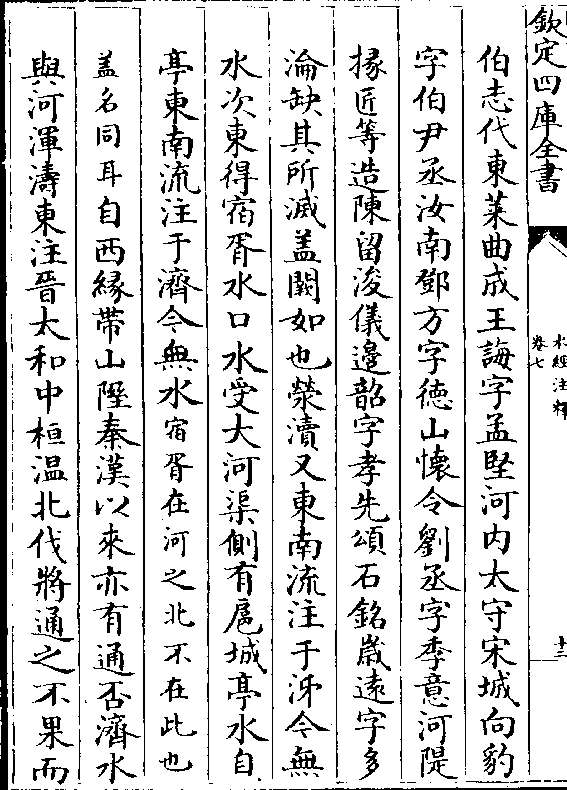 欽定四庫全書
水經注釋
卷七
十三
伯志代東萊曲成王誨字孟堅河内太守宋城向豹
字伯尹丞汝南鄧方字徳山懷令劉丞字季意河隄
掾匠等造陳留浚儀邉韶字孝先頌石銘嵗逺字多
淪缺其所滅盖闕如也滎瀆又東南流注于泲今無
水次東得宿胥水口水受大河渠側有扈城亭水自
亭東南流注于濟今無水宿胥在河之北不在此也
盖名同耳自西縁帶山隆秦漢以來亦有通否濟水
與河渾濤東注晉太和中桓温北伐將通之不果而